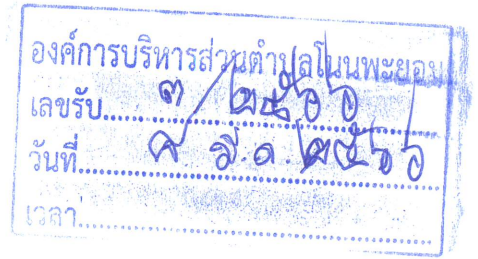 องค์การบริหารส่วนตำบลโนนพะยอม
เลขรับ ๓/๒๕๖๖
วันที่ ๘ มี.ค. ๒๕๖๖
เวลา